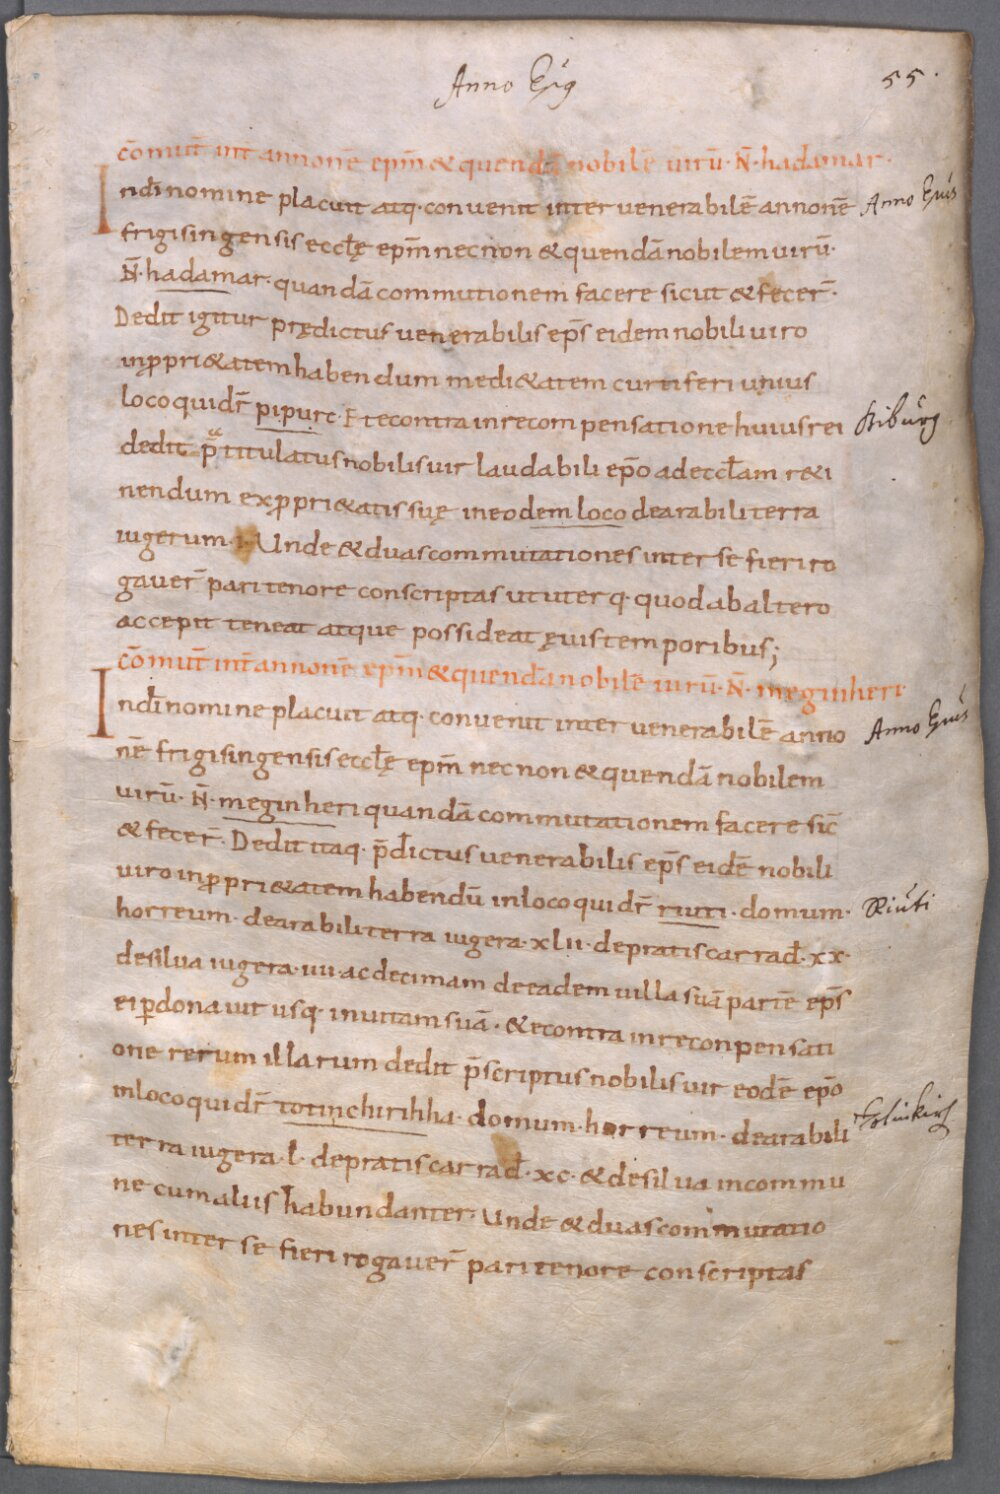 Anno Epĩg
55.
cōmut̄ int̄ annonē epm̄ & quendā nobilē uirū · N̄ · hadamar ·
Indī nomine placuit atq· conuenit inter uenerabilē annonē
Anno Epũs
frigisingensis eccłę epm̄ necnon & quendā nobilem uirū·
N̄· hadamar· quandā commutionem facere sicut & fecer̄·
Dedit igitur prędictus uenerabilis ep̄s eidem nobili uiro
in ꝓpri&atem habendum medi&atem curtiferi unius
loco qui dr̄ pipurc· Et econtra in recompensatione huius rei
dedit p̄titulatus nobilis uir laudabili ep̄o ad eccłam r&i
nendum ex ꝓpri&atis suę in eodem loco de arabili terra
iugerum ·i· Unde & duas commutationes inter se fieri ro
gauer̄ pari tenore conscriptas ut uterq· quod ab altero
accepit teneat atque possideat ęuis temporibus;
cōmut̄ int̄ annonē epm̄ & quendā nobilē uirū· N̄· meginheri·
Indī nomine placuit atq· conuenit inter uenerabilē anno
Anno Epũs
nē frigisingensis eccłę epm̄ necnon & quendā nobilem
uirū· N̄· meginheri quandā commutationem facere sic̄
& fecer̄· Dedit itaq· p̄dictus uenerabilis ep̄s eidē nobili
uiro in ꝓpri&atem habendū in loco qui dr̄ riuti· domum·
Riúti
horreum· de arabili terra iugera· xlii· de pratis carrad̄· xx·
de silua iugera· uii· ac decimam de eadem uilla suā partē ep̄s
ei ꝑdonauit usq· in uitam suā· & econtra in reconpensati
one rerum illarum dedit p̄scriptus nobilis uir eodē ep̄o
in loco qui dr̄ totinchirihha· domum· horreum· de arabili
terra iugera· l· de pratis carrad̄· xc· & de silua in commu
ne cum aliis habundanter· Unde & duas commutatio
nes inter se fieri rogauer̄ pari tenore conscriptas